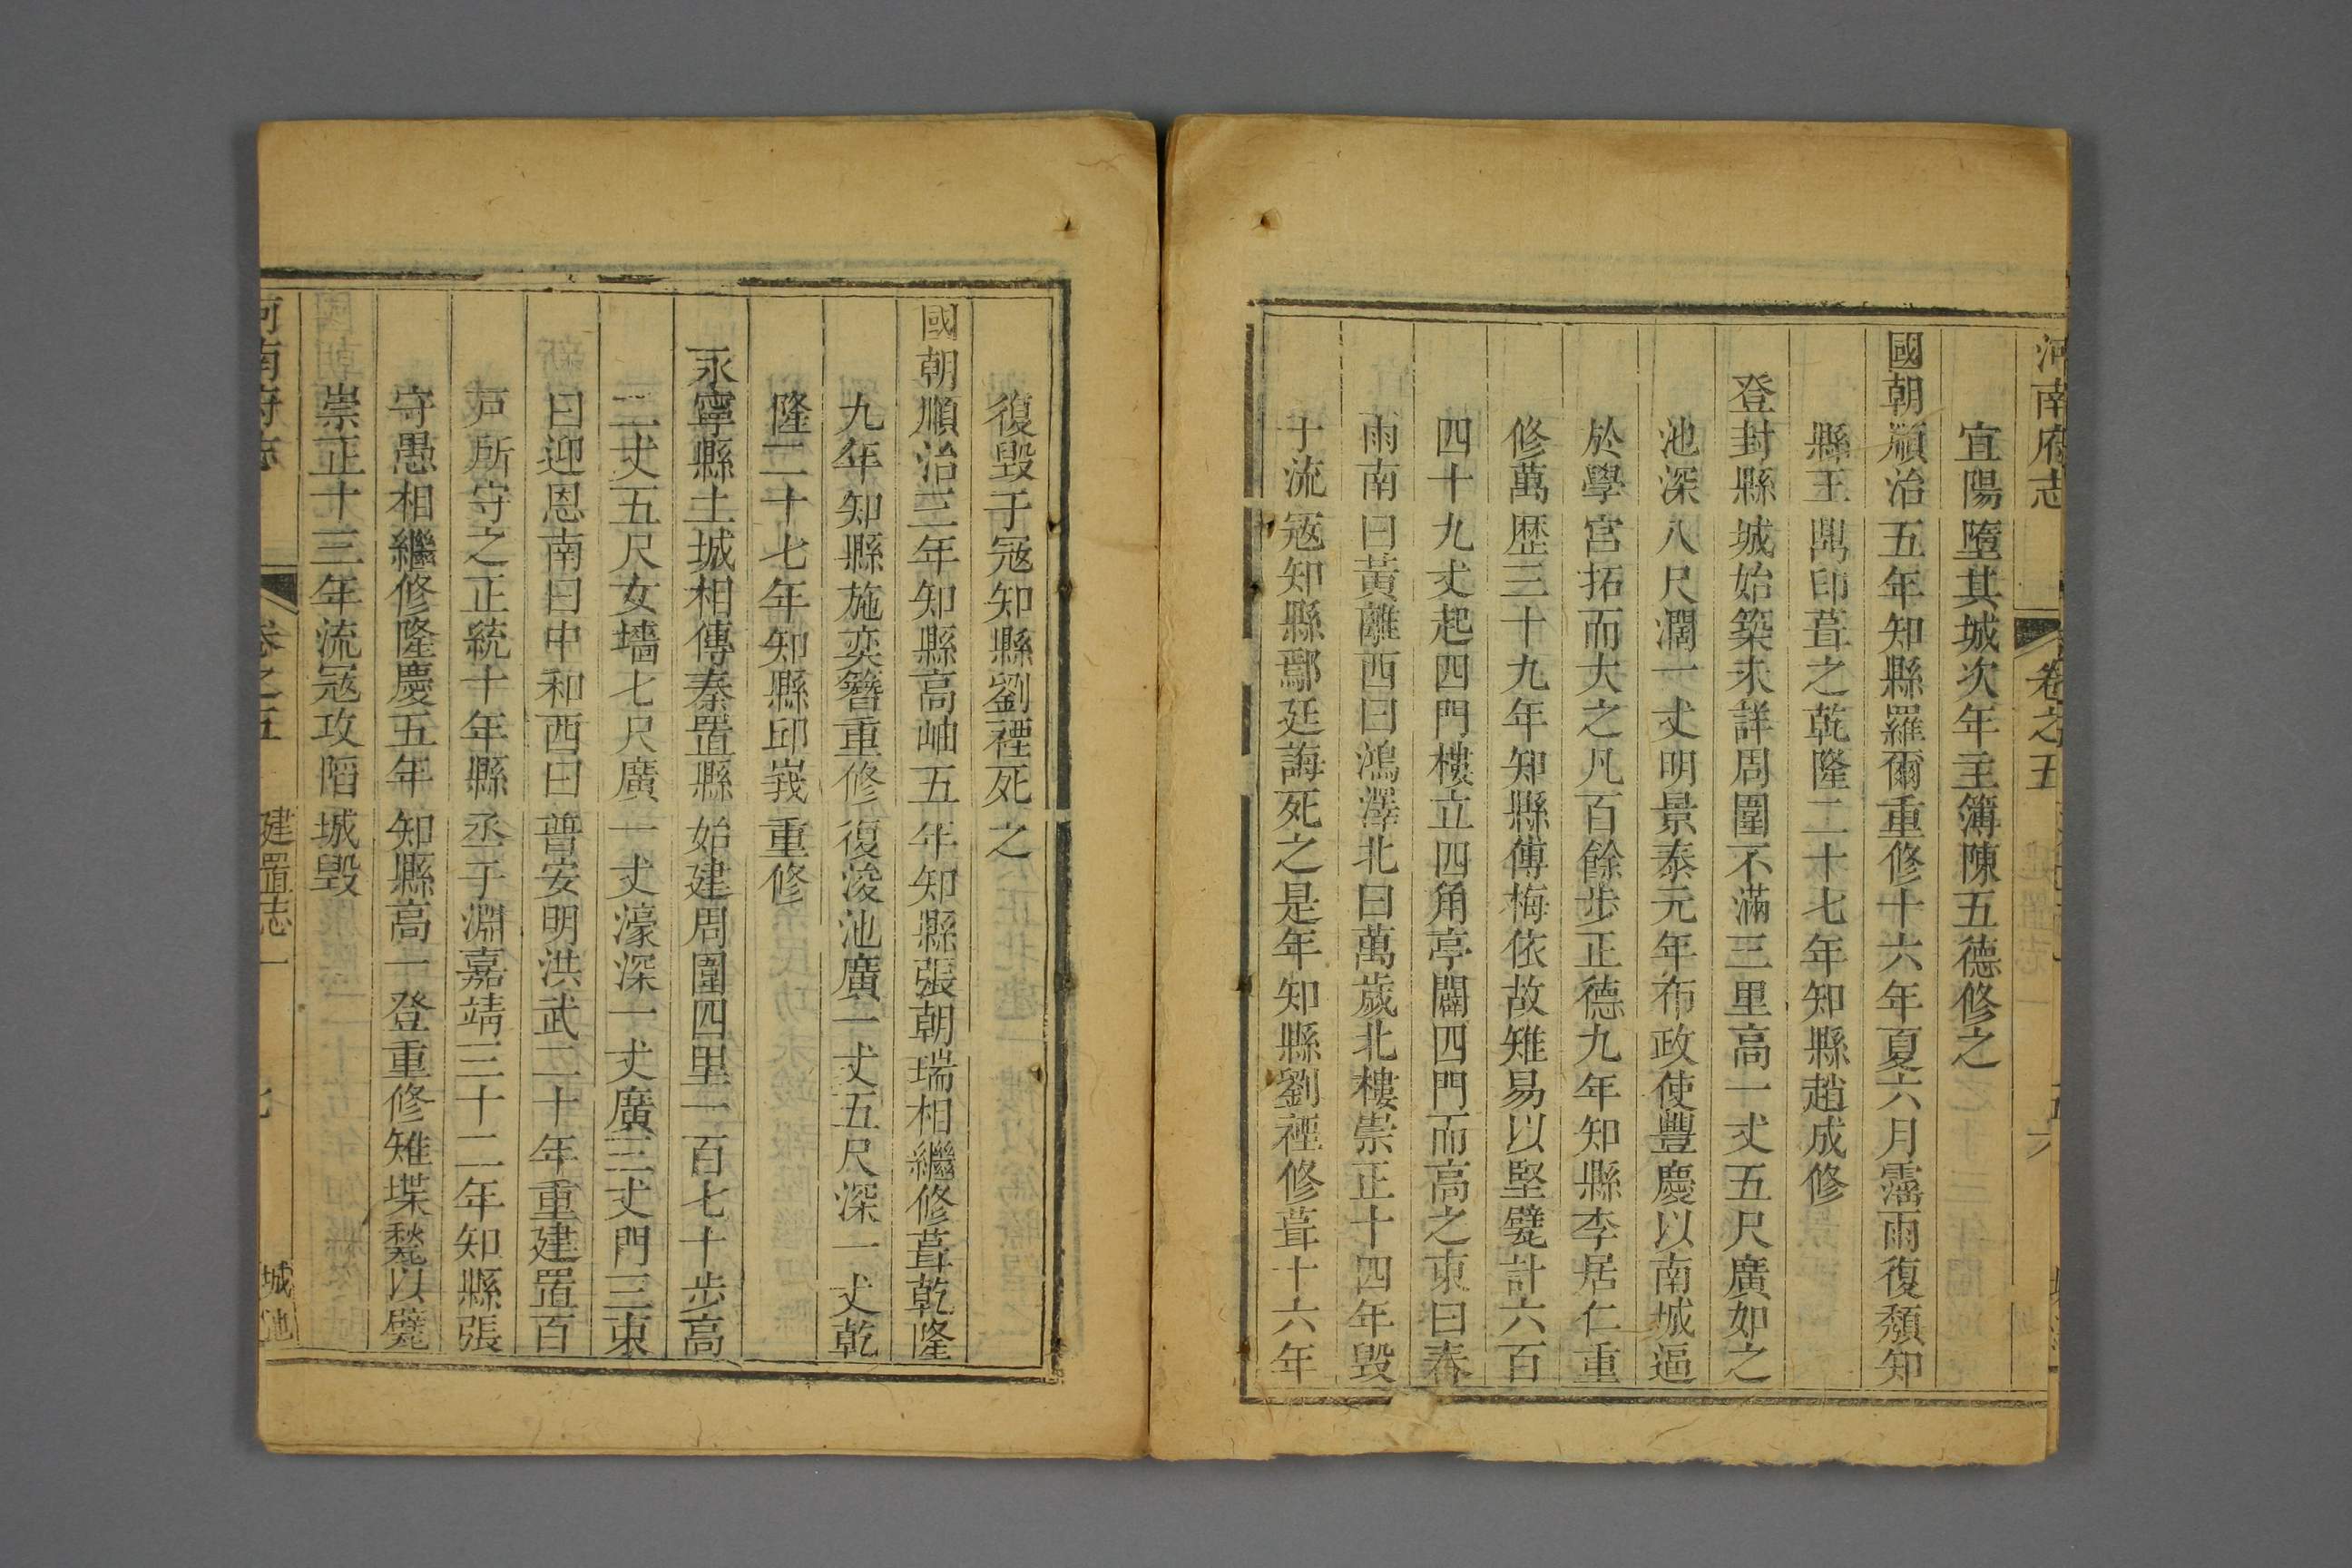 河南府志 卷之五 六
宜陽墮其城次年主簿陳五德修之
國朝順治五年知縣羅爾重修十六年夏六月霪雨復頹知
縣王鼎印葺之乾隆二十七年知縣趙成修
登封縣城始築未詳周圍不滿三里高一丈五尺廣如之
池深八尺濶一丈明景泰元年布政使豐慶以南城逼
於學宮拓而大之凡百餘步正德九年知縣李居仁重
修萬歷三十九年知縣傅梅依故雉易以堅甓計六百
四十九丈起四門樓立四角亭闢四門而高之東曰春
雨南曰黃離西曰鴻澤北曰萬歲北樓崇正十四年毀
于流寇知縣鄢廷誨死之是年知縣劉禋修葺十六年
復毀于寇知縣劉禋死之
國朝順治三年知縣高岫五年知縣張朝瑞相繼修葺乾隆
九年知縣施奕簪重修復浚池廣一丈五尺深一丈乾
隆二十七年知縣邱峩重修
永寧縣土城相傳秦置縣始建周圍四里一百七十步高
二丈五尺女墻七尺廣一丈濠深一丈廣三丈門三東
曰迎恩南曰中和西曰普安明洪武二十年重建置百
戸所守之正統十年縣丞于淵嘉靖三十二年知縣張
守愚相繼修隆慶五年知縣高一登重修雉堞甃以甓
崇正十三年流寇攻陷城毀
河南府志 卷之五 建置志一 城池 七